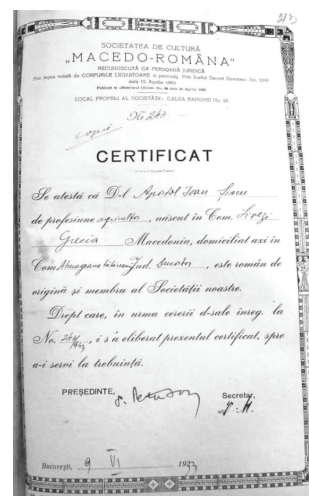 SOCIETATEA DE CULTURĂ
„MACEDO-ROMÂNA"
RECUNOSCUTĂ CA PERSOANĂ JURIDICĂ
prin legea votată de CORPURILE LEGIUITOARE și promulg. Prin Înaltul Decret Domnesc No. 1298
data 15 Aprilie 1880
LOCAL PROPRIU AL SOCIETĂȚII: CALEA RAHOVEI No. 29
No. 243
copie
CERTIFICAT
Se atestă că D-l Apostol Ioan
de profesiune agricultor, născut în Com.
Grecia Macedonia, domiciliat azi în
Com. Jud. Durostor, este român de
origină și membru al Societății noastre.
Drept care, în urma cererii d-sale înreg. la
No. i s'a eliberat prezentul certificat, spre
a-i servi la trebuință.
PREȘEDINTE, Secretar,
București, 9 VI 1933